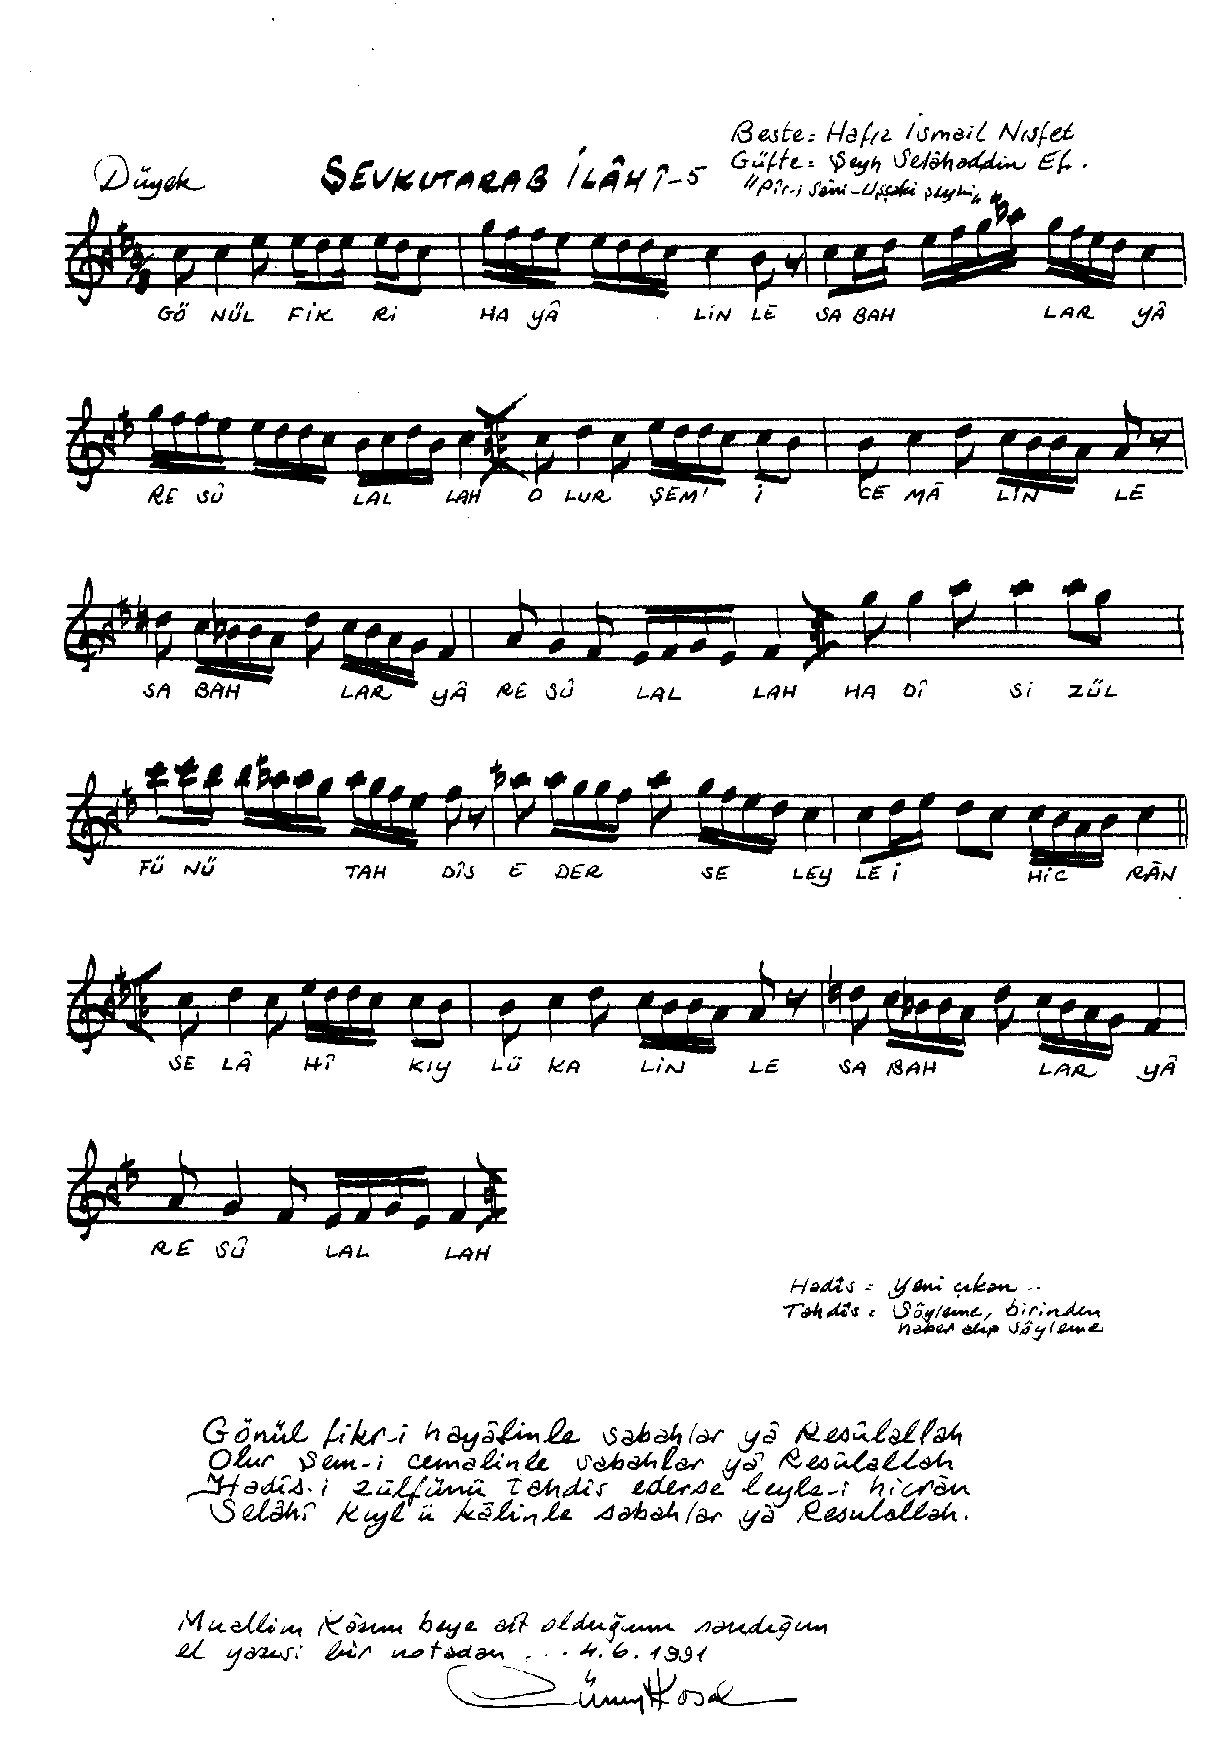 Beste: Hafız İsmail Nısfet
Düyek
ŞEVKUTARAB İLÂHÎ-5
Güfte: Şeyh Selâhaddin Ef.
"Pîr-i Sâni-Uşşaki şeyhi"
GÖ NÜL FİK Rİ HA YÂ LİN LE SA BAH LAR YÂ
RE SÛ LAL LAH O LUR ŞEM' İ CE MÂ LİN LE
SA BAH LAR YÂ RE SÛ LAL LAH HA DÎ Sİ ZÜL
FÜ NÜ TAH DÎS E DER SE LEY LE İ HİC RÂN
SE LÂ HÎ KIY LÜ KA LİN LE SA BAH LAR YÂ
RE SÛ LAL LAH
Hadîs = Yeni çıkan ..
Tahdîs = Söyleme, birinden
haber alıp söyleme
Gönül fikr-i hayâlinle sabahlar yâ Resûlallah
Olur Şem-i cemalinle sabahlar yâ Resûlallah
Hadîs-i zülfünü tahdis ederse leyle-i hicrân
Selâhî kıyl ü kâlinle sabahlar yâ Resulallah.
Muallim Kâzım beye ait olduğunu sandığım
el yazısı bir notadan ... 4.6.1991